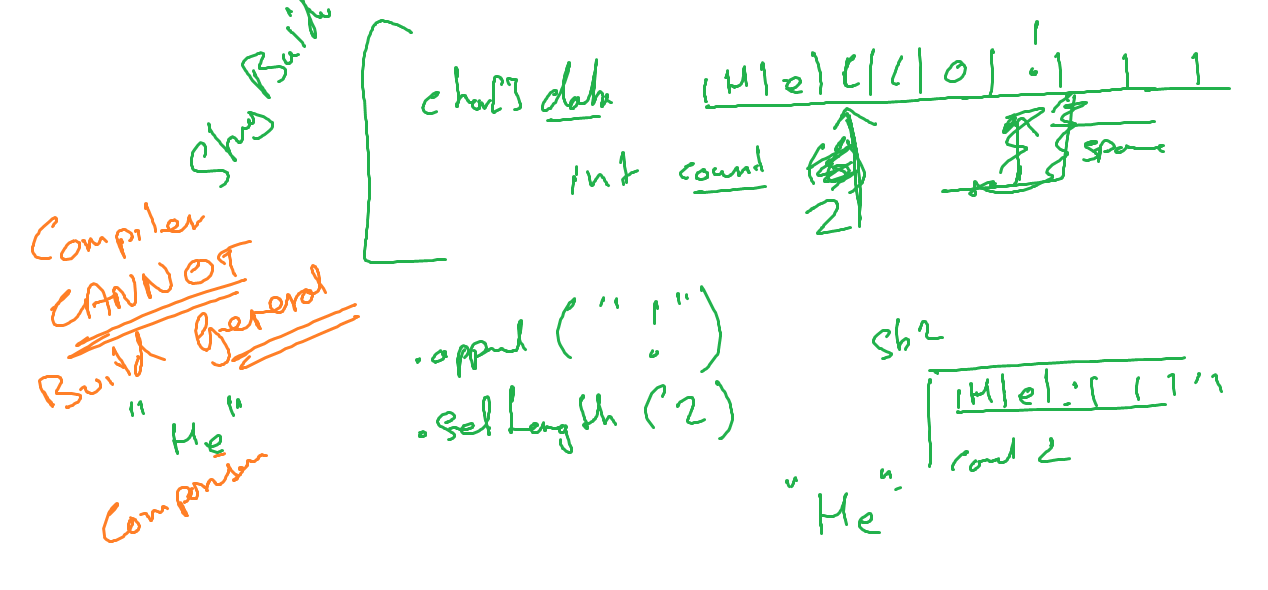 !
char[] data |H|e|l|l|o|!| | |
int count 2 space
Compiler
CANNOT
Build general
"He"
Comparison
.append("!")
.setLength(2)
sb2
|H|e|!| | |
count 2
"He"